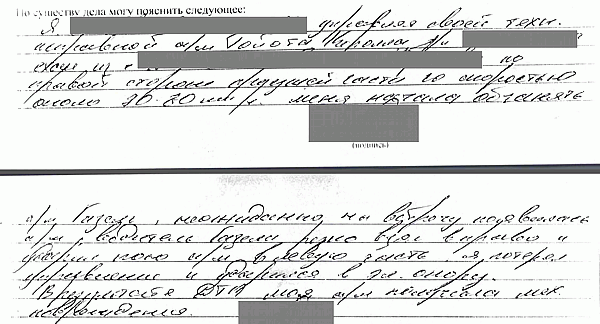 По существу дела могу пояснить следующее:
Я управляя своей техн.
исправной а/м Тойота Королла, г/н
ехал из г. по
правой стороне проезжей части со скоростью
около 20-20 км/ч. меня начала обгонять
(подпись)
а/м Газель, неожиданно на встречу появилась
а/м, водитель Газели резко взял вправо и
ударил мою а/м в левую часть я потерял
управление и ударился в эл. опору.
В результате ДТП моя а/м получила мех.
повреждения.